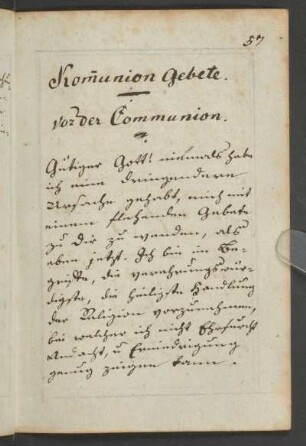 57
Kom̄union Gebete.
vor der Communion.
Gütiger Gott! niemals habe
ich eine dringendere
Ursache gehabt, mich mit
einem flehenden Gebete
zu dir zu wenden, als
eben jetzt. Ich bin im Be-
griffe, die verehrungswür-
digste, die heiligste Handlung
der Religion vorzunehmen,
bei welcher ich nicht Ehrfurcht
Andacht, u Erniedrigung
genug zeigen kann.